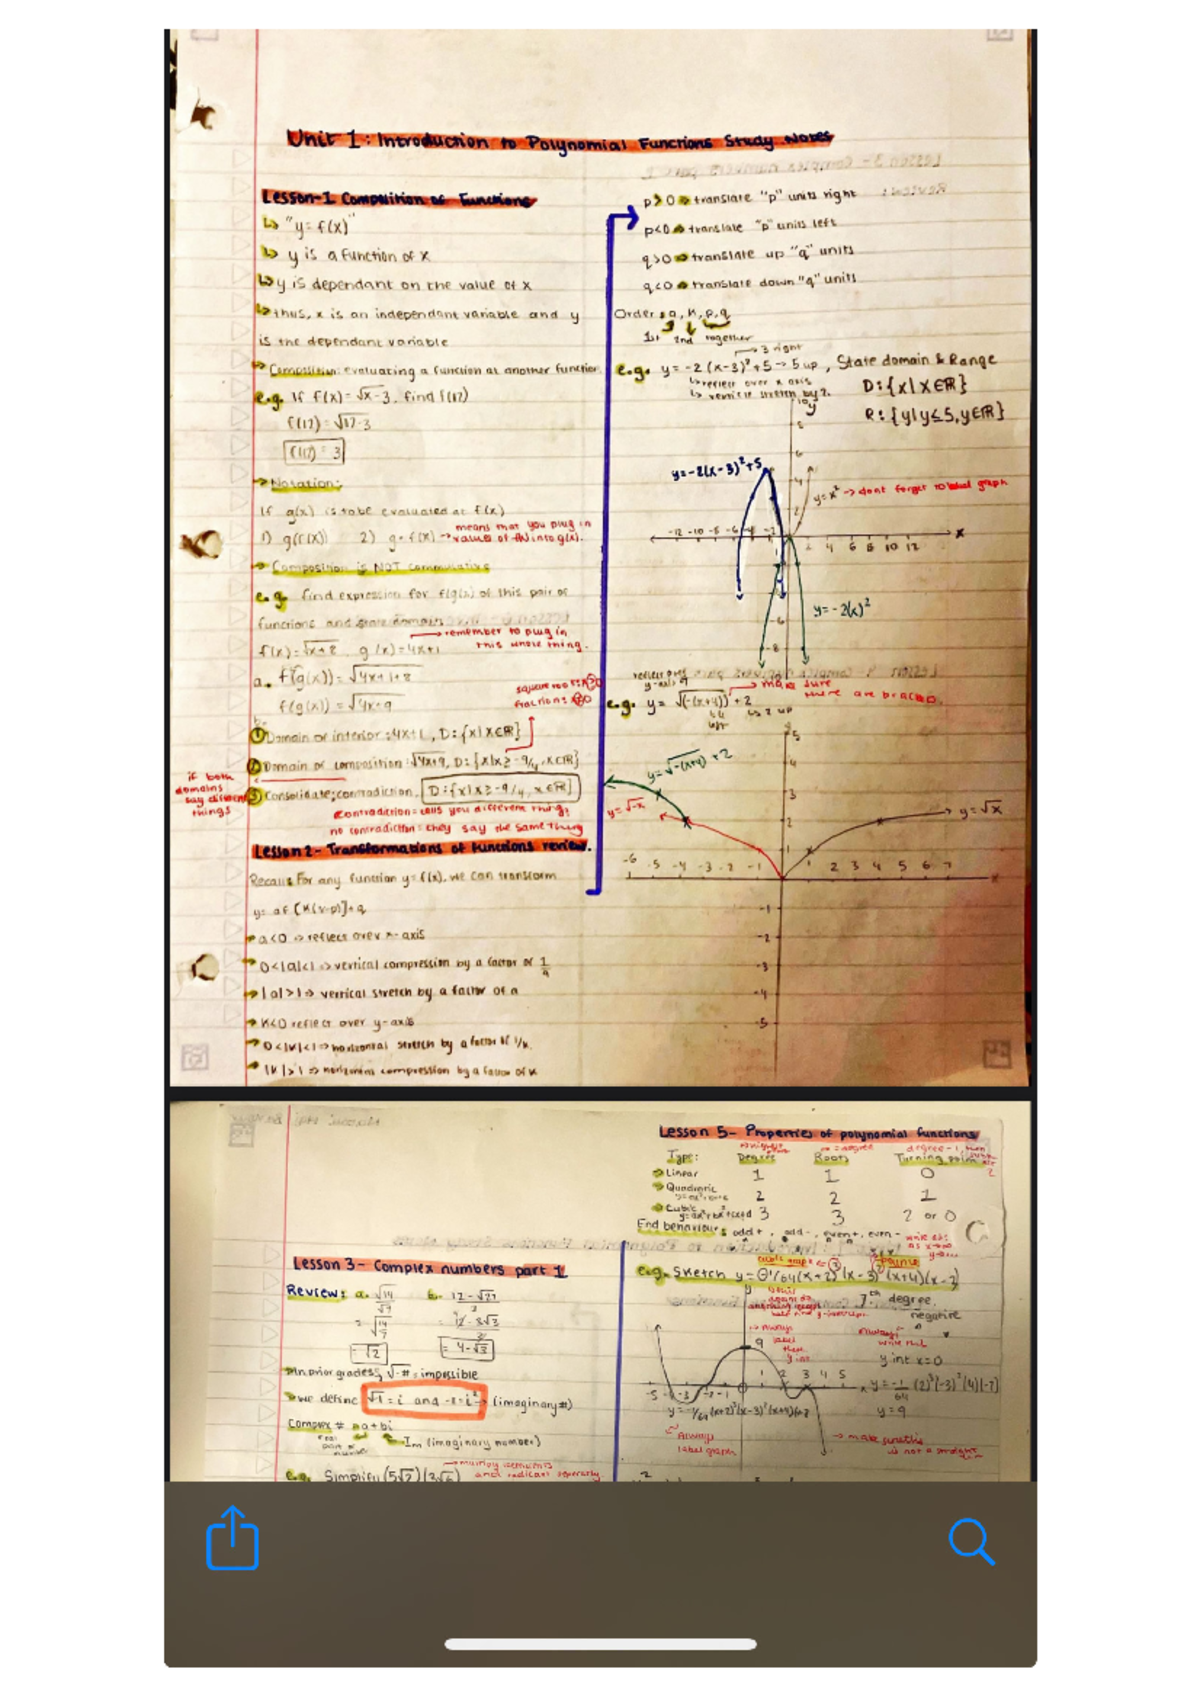 Unit 1: Introduction to Polynomial Functions Study Notes
Lesson-1 Composition of Functions
↳ "y=f(x)"
↳ y is a function of x
↳ y is dependant on the value of x
↳ thus, x is an independant variable and y
is the dependant variable
Composition: evaluating a function at another function
e.g. If f(x)=√x-3, find f(12)
f(12)=√12-3
f(12)=3
Notation:
If g(x) is to be evaluated at f(x)
1) g(f(x)) 2) g∘f(x) → means that you plug in
values of f(x) into g(x).
Composition is NOT commutative
e.g find expression for f(g(x)) of this pair of
functions and state domain
→ remember to plug in
this whole thing.
f(x)=√x+8 g(x)=4x+1
a. f(g(x))=√4x+1+8
f(g(x))=√4x+9
① Domain of interior: 4x+1, D:{x|x∈R}
② Domain of composition: √4x+9, D:{x|x≥-9/4, x∈R}
if both
domains
say different
things
③ Consolidate; contradiction, D:{x|x≥-9/4, x∈R}
contradiction = tells you different thing,
no contradiction = they say the same thing
Lesson 2- Transformations of functions review.
Recall: For any function y=f(x), we can transform
y= af[k(x-p)]+q
a<0 ⇒ reflect over x-axis
0<|a|<1 ⇒ vertical compression by a factor of 1/a
|a|>1 ⇒ vertical stretch by a factor of a
k<0 reflect over y-axis
0<|k|<1 ⇒ horizontal stretch by a factor of 1/k
|k|>1 ⇒ horizontal compression by a factor of k
p>0 ⇒ translate "p" units right
p<0 ⇒ translate "p" units left
q>0 ⇒ translate up "q" units
q<0 ⇒ translate down "q" units
Order: a, k, p, q
1st 2nd together
→ 3 right
e.g. y=-2(x-3)²+5 → 5 up, State domain & Range
↳ reflect over x axis
↳ vertical stretch by 2.
D:{x|x∈R}
R:{y|y≤5, y∈R}
y=-2(x-3)²+5
y=x² → dont forget to label graph
-12 -10 -8 -6 -4 -2 2 4 6 8 10 12 x
y=-2(x)²
reflect over
y-axis
→ make sure
there are brackets.
e.g. y=√(-(x+4))+2
↳ 2 up
y=√-(x+4)+2
y=√-x
y=√x
-6 -5 -4 -3 -2 -1 1 2 3 4 5 6 7 x
-1
-2
-3
-4
-5
Lesson 3- Complex numbers part 1
Review: a. √14/√7 b. 12-√27/3
=√14/7 = 12-3√3/3
=√2 = 4-√3
In prior grades, √-# = impossible
we define √-1=i and -1=i² (imaginary #)
Complex # a+bi
Im (imaginary number)
→ multiply coefficients
and radicals seperatly
e.g. Simplify (5√2)(3√6)
Lesson 5- Properties of polynomial functions
Type: Degree Roots Turning points
Linear 1 1 0
Quadratic 2 2 1
Cubic
y=ax³+bx²+cx+d 3 3 2 or 0
End behaviour: odd+, odd-, even+, even-
e.g. Sketch y=-1/64(x+2)³(x-3)²(x+4)(x-2)
7th degree,
negative
y int x=0
y=-1/64 (2)³(-3)²(4)(-2)
y=9
Always
label graph
→ make smooths
not a straight
line